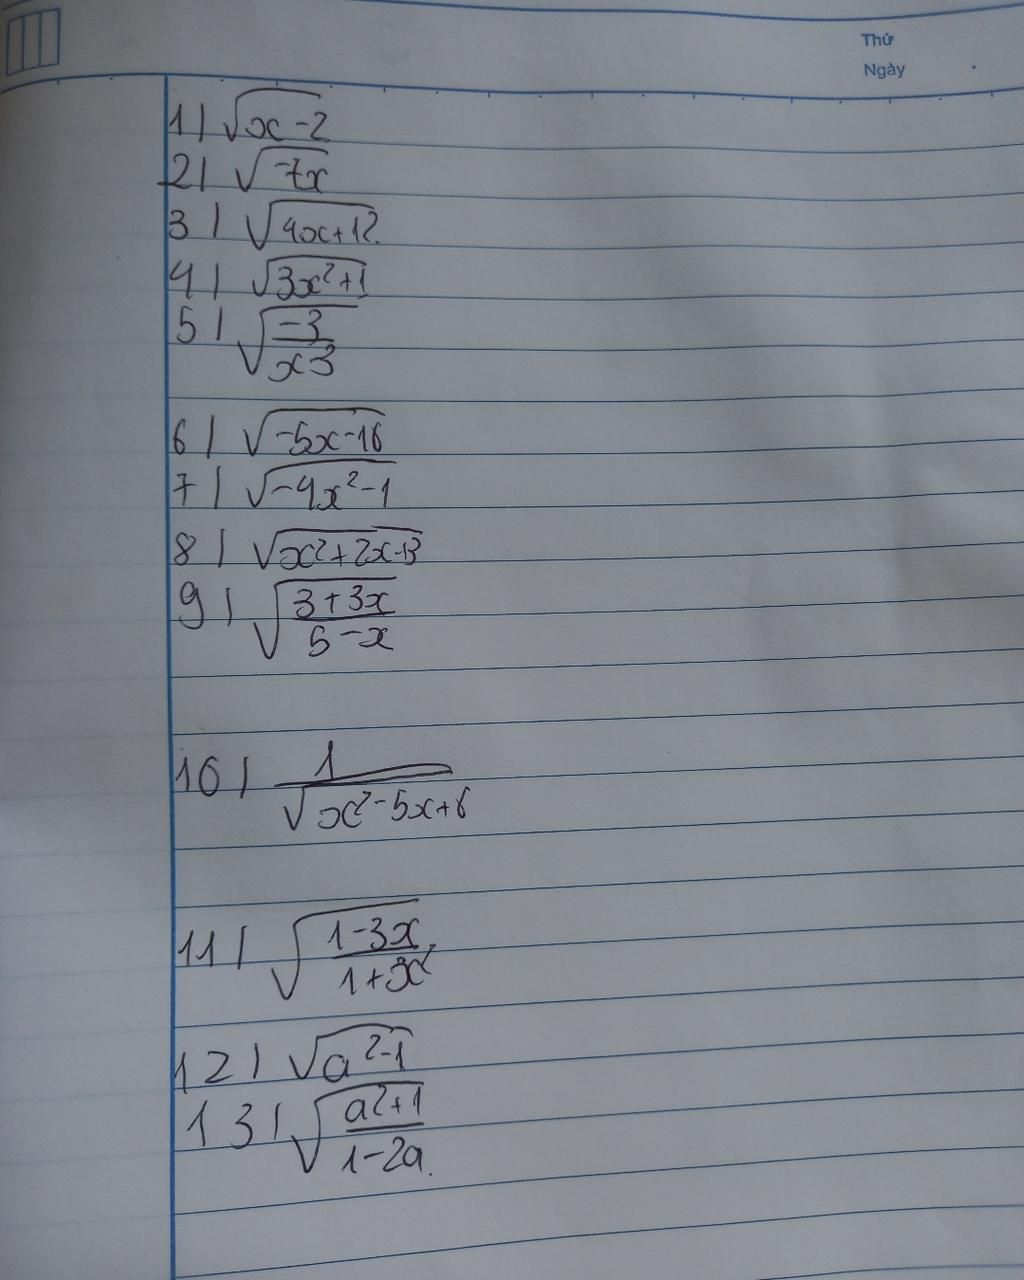 Thứ
Ngày
1) √(x-2)
2) √(-7x)
3) √(4x+12)
4) √(3x²+1)
5) √(-3/(x-3))
6) √(-5x-16)
7) √(-4x²-1)
8) √(x²+2x+3)
9) √((3+3x)/(5-x))
10) 1/√(x²-5x+6)
11) √((1-3x)/(1+3x))
12) √(a²-1)
13) √((a²+1)/(1-2a))